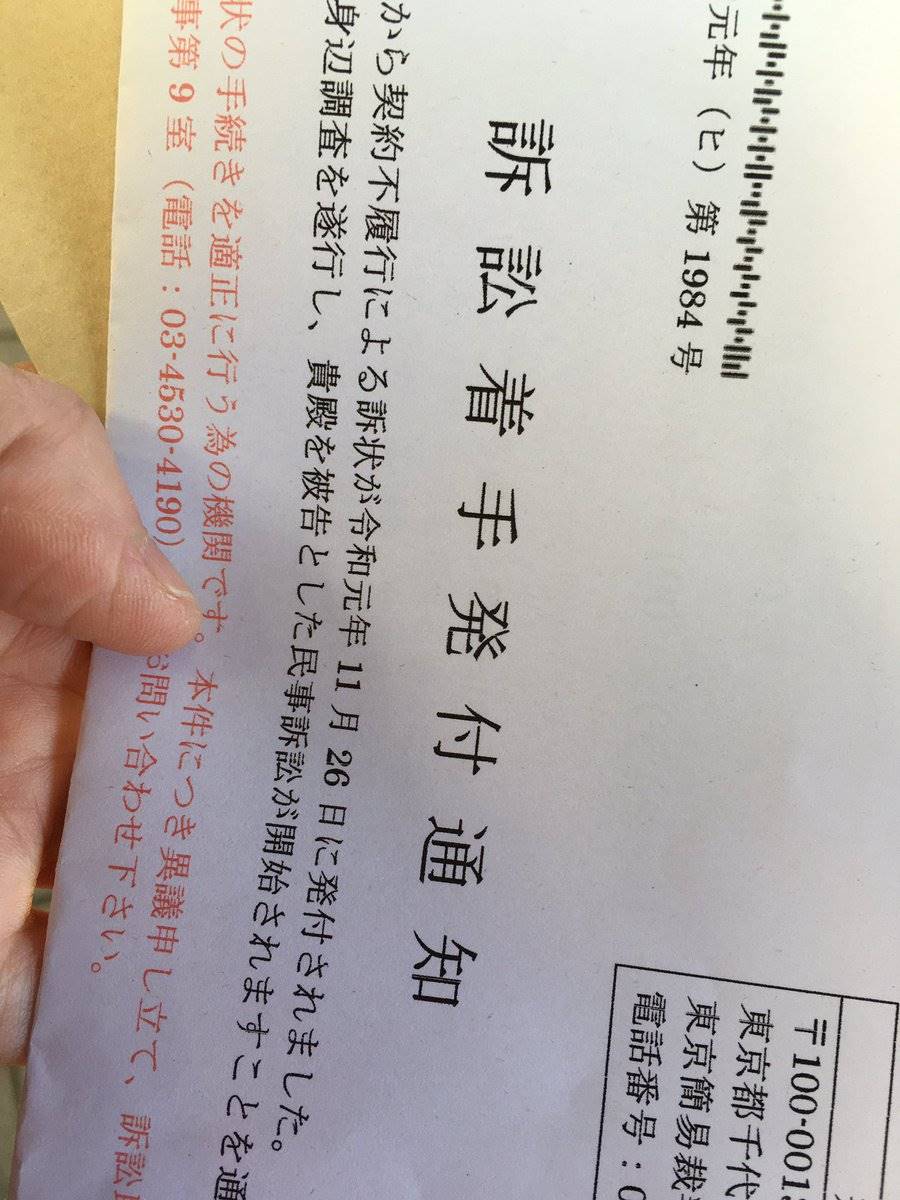 元年（ヒ）第1984号
〒100-001
東京都千代
東京簡易裁
電話番号：0
訴訟着手発付通知
から契約不履行による訴状が令和元年11月26日に発付されました。
身辺調査を遂行し、貴殿を被告とした民事訴訟が開始されますことを通
状の手続きを適正に行う為の機関です。本件につき異議申し立て、訴訟
事第9室（電話：03-4530-4190）
お問い合わせ下さい。